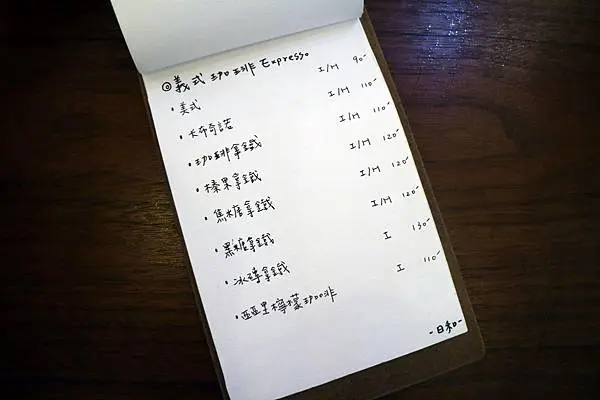 ◎義式咖啡 Expresso
・美式 I/H 90-
・卡布奇諾 I/H 110-
・咖啡拿鐵 I/H 110-
・榛果拿鐵 I/H 120-
・焦糖拿鐵 I/H 120-
・黑糖拿鐵 I/H 120-
・冰磚拿鐵 I 130-
・西西里檸檬咖啡 I 110-
-日和-